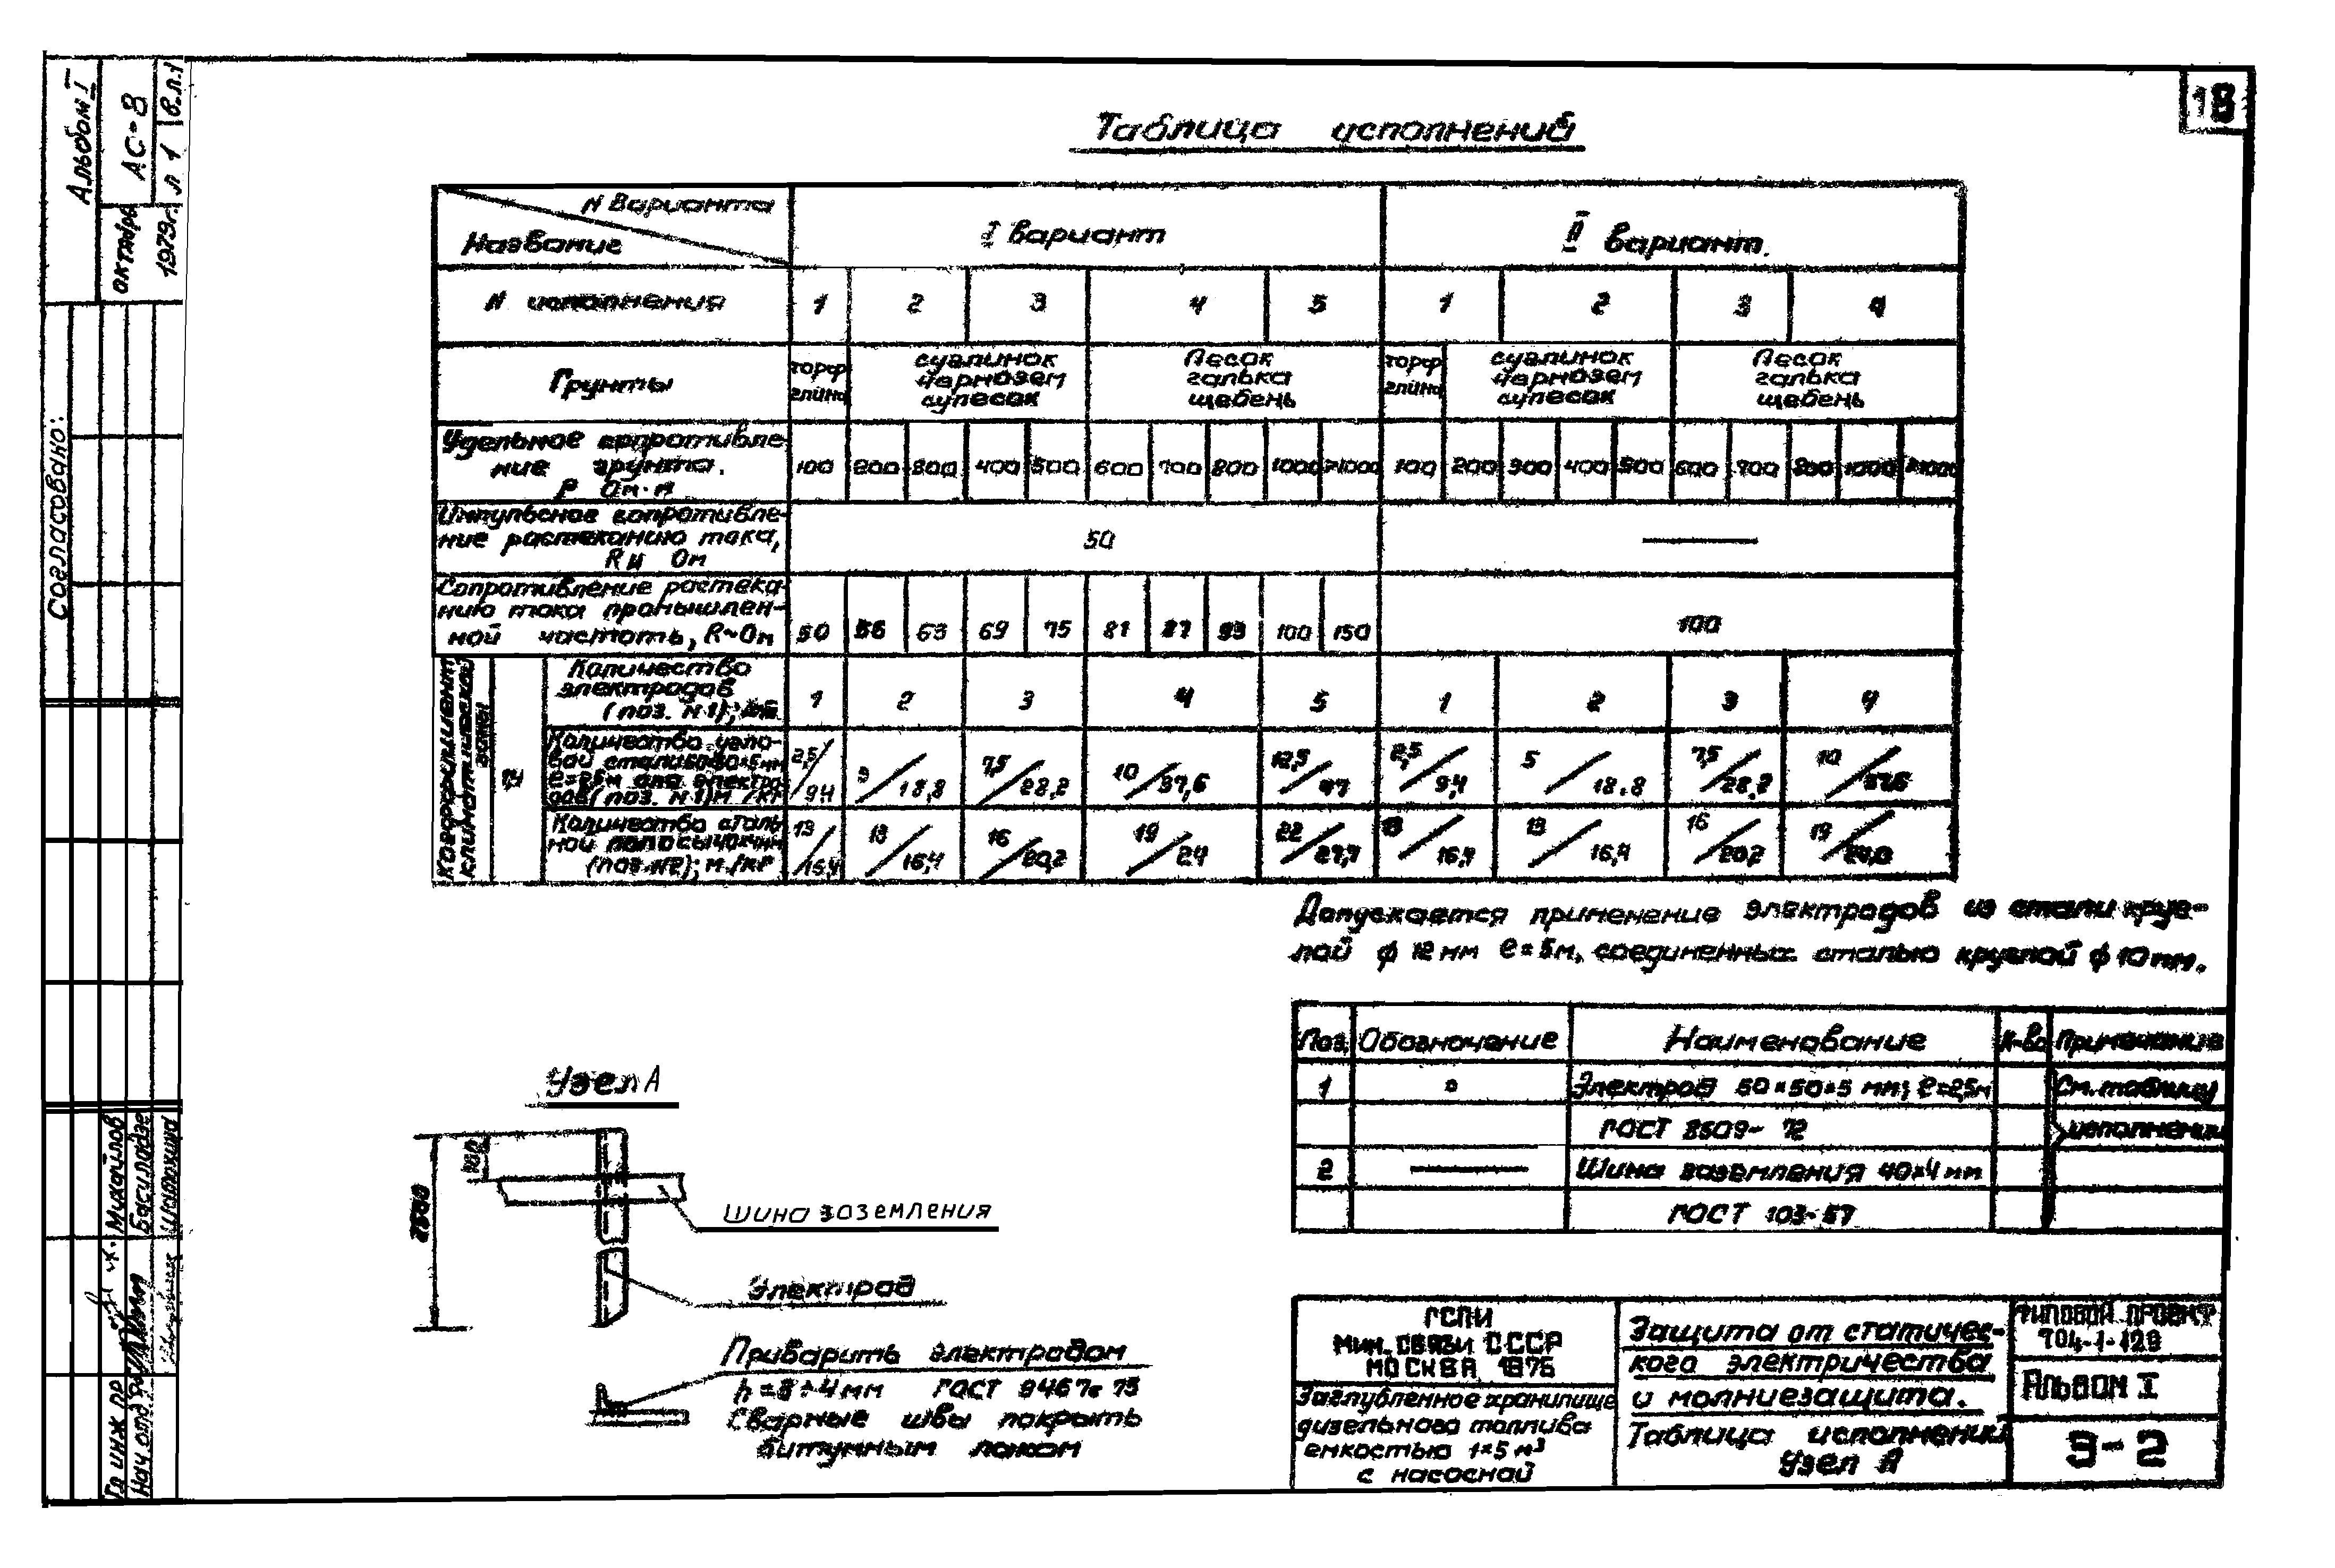 Альбом I
АС-8
л 1 в.л.1
октябрь 1979г.
Согласовано:
Михайлов
Гл инж пр
Нач. отд
Таблица исполнений
N Варианта
Название
I вариант
II вариант.
N исполнения
1 2 3 4 5 1 2 3 4
Грунты
торф глина
суглинок чернозем супесок
Песок галька щебень
торф глина
суглинок чернозем супесок
Песок галька щебень
Удельное сопротивле-
ние грунта.
ρ Ом·м
100 200 300 400 500 600 700 800 1000 >1000 100 200 300 400 500 600 700 800 1000 >1000
Импульсное сопротивле-
ние растеканию тока,
Rи Ом
50
Сопротивление растека-
нию тока промышлен-
ной частоты, R~Ом
50 56 63 69 75 81 87 93 100 150
100
Коэффициент климатической
Количество
электродов
(поз. N1);
1 2 3 4 5 1 2 3 4
Количество угло-
вой стали 50×50×5мм
ℓ=2,5м для электро-
дов (поз. N1) м /кг
2,5/9,4 5/18,8 7,5/28,2 10/37,6 12,5/47 2,5/9,4 5/18,8 7,5/28,2 10/37,6
Количество сталь
ной полосы 40×4мм
(поз. N2); м./кг
13/16,4 13/16,4 16/20,2 19/24 22/27,7 13/16,4 13/16,4 16/20,2 19/24,0
Допускается применение электродов из стали круг-
лой ф 12 мм ℓ=5м, соединенных сталью круглой ф 10 мм.
Поз. Обозначение Наименование К-во Примечание
1 Электрод 50×50×5 мм; ℓ=2,5м См. таблицу
ГОСТ 8509-72 исполнений
2 Шина заземления 40×4 мм
ГОСТ 103-57
Узел А
2500
Шина заземления
Электрод
Приварить электродом
h=3÷4мм ГОСТ 9467-75
Сварные швы покрыть
битумным лаком
ГСПИ
Мин. связи СССР
МОСКВА 1975
Заглубленное хранилище
дизельного топлива
емкостью 1×5 м³
с насосной
Защита от статичес-
кого электричества
и молниезащита.
Таблица исполнений
Узел А
ТИПОВОЙ ПРОЕКТ
704-1-129
АЛЬБОМ I
Э-2